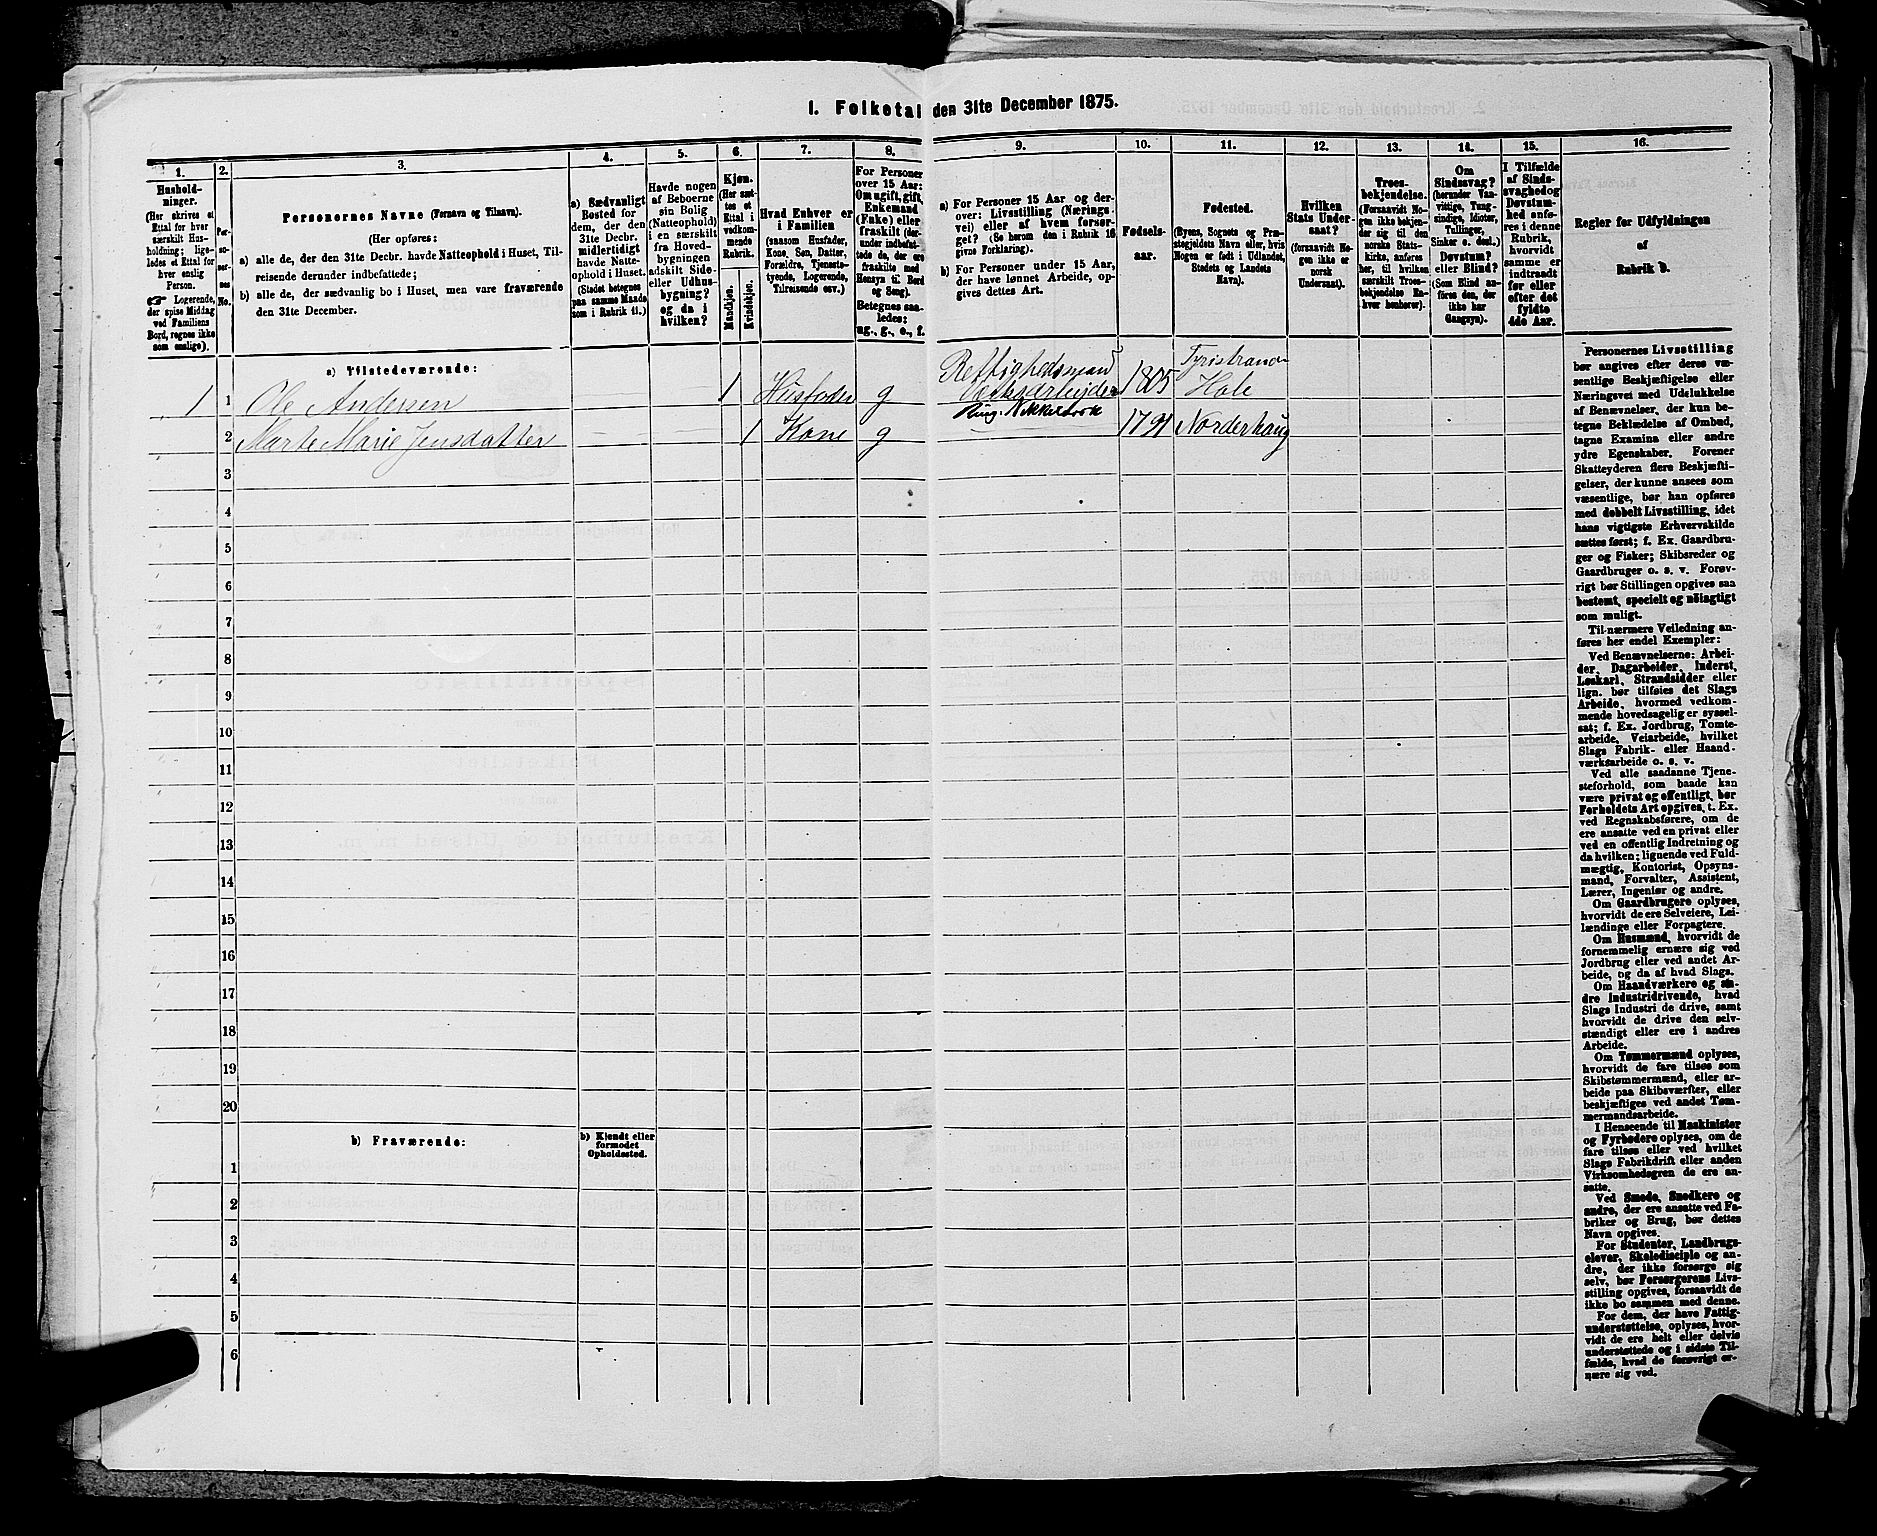 1. Folketal den 31te December 1875.
1. 2. 3. 4. 5. 6. 7. 8. 9. 10. 11. 12. 13. 14. 15. 16.
Hushold-
ninger.
(Her skrives et
Ettal for hver
særskilt Hus-
holdning; lige-
ledes et Ettal for
hver enslig
Person.
☞ Logerende,
der spise Middag
ved Familiens
Bord, regnes ikke
som enslige).
Per-
so-
ner-
nes
No.
Personernes Navne (Fornavn og Tilnavn).
(Her opføres:
a) alle de, der den 31te Decbr. havde Natteophold i Huset, Til-
reisende derunder indbefattede;
b) alle de, der sædvanlig bo i Huset, men vare fraværende
den 31te December.
a) Sædvanligt
Bosted for
dem, der den
31te Decbr.
midlertidigt
havde Natte-
ophold i Huset.
(Stedet betegnes
paa samme Maade
som i Rubrik 11.)
Havde nogen
af Beboerne
sin Bolig
(Natteophold)
i en særskilt
fra Hoved-
bygningen
adskilt Side-
eller Udhus-
bygning?
og da i
hvilken?
Kjøn.
(Her sæt-
tes et
Ettal i
vedkom-
mende
Rubrik.
Mandkjøn.
Kvindekjøn.
Hvad Enhver er
i Familien
(saasom Husfader,
Kone, Søn, Datter,
Forældre, Tjeneste-
tyende, Logerende,
Tilreisende osv.)
For Personer
over 15 Aar:
Om ugift, gift,
Enkemand
(Enke) eller
fraskilt (der-
under indbefat-
tede de, der ere
fraskilte med
Hensyn til Bord
og Seng).
Betegnes saa-
ledes:
ug., g., e., f.
a) For Personer 15 Aar og der-
over: Livsstilling (Nærings-
vei) eller af hvem forsør-
get? (Se herom den i Rubrik 16
givne Forklaring).
b) For Personer under 15 Aar,
der have lønnet Arbeide, op-
gives dettes Art.
Fødsels-
aar.
Fødested.
(Byens, Sognets og Præ-
stegjeldets Navn eller, hvis
Nogen er født i Udlandet,
Stedets og Landets
Navn).
Hvilken
Stats Under-
saat?
(forsaavidt No-
gen ikke er
norsk
Undersaat).
Troes-
bekjendelse.
(Forsaavidt No-
gen ikke bekjen-
der sig til den
norske Stats-
kirke, anføres
her, til hvilken
særskilt Troes-
bekjendelse En-
hver henhører).
Om
Sindssvag?
(herunder Van-
vittige, Tung-
sindige, Idioter,
Sinker o. desl.)
Døvstum?
eller Blind?
(Som Blind an-
føres den, der
ikke har
Gangsyn).
I Tilfælde
af Sinds-
svaghed og
Døvstum-
hed anfø-
res i denne
Rubrik,
hvorvidt
samme er
indtraadt
før eller
efter det
fyldte
4de Aar.
Regler for Udfyldningen
af
Rubrik 9.
a) Tilstedeværende:
1 1 Ole Andersen 1 Husfader g Rettighedsmand 1805 Tyristrand
Verksarbeider Hole
Ring. Nikkelverk
2 Marte Marie Jensdatter 1 Kone g 1791 Norderhoug
3
4
5
6
7
8
9
10
11
12
13
14
15
16
17
18
19
20
b) Fraværende:
b) Kjendt eller
formodet
Opholdssted.
1
2
3
4
5
6
Personernes Livsstilling
bør angives efter deres væ-
sentlige Beskjæftigelse eller
Næringsvei med Udelukkelse
af Benævnelser, der kun be-
tegne Beklædelse af Ombud,
tagne Examina eller andre
ydre Egenskaber. Forener
Skatteyderen flere Beskjæfti-
gelser, der kunne ansees som
væsentlige, bør han opføres
med dobbelt Livsstilling, idet
hans vigtigste Erhvervskilde
sættes først; f. Ex. Gaardbru-
ger og Fisker; Skibsreder og
Gaardbruger o. s. v. Forøv-
rigt bør Stillingen opgives saa
bestemt, specielt og nøiagtigt
som muligt.
Til nærmere Veiledning an-
føres her endel Exempler:
Ved Benævnelserne: Arbei-
der, Dagarbeider, Inderst,
Løskarl, Strandsidder eller
lign. bør tilføies det Slags
Arbeide, hvormed vedkom-
mende hovedsagelig er syssel-
sat; f. Ex. Jordbrug, Tomte-
arbeide, Veiarbeide, hvilket
Slags Fabrik- eller Haand-
værksarbeide o. s. v.
Ved alle saadanne Tjene-
steforhold, som baade kan
være privat og offentligt, bør
Forholdets Art opgives, t. Ex.
ved Regnskabsførere, om de
ere ansatte ved en privat eller
ved en offentlig Indretning og
da hvilken; lignende ved Fuld-
mægtig, Kontorist, Opsyns-
mand, Forvalter, Assistent,
Lærer, Ingeniør og andre.
Om Gaardbrugere oplyses,
hvorvidt de ere Selveiere, Lei-
lændinge eller Forpagtere.
Om Husmænd, hvorvidt de
fornemmelig ernære sig ved
Jordbrug eller ved andet Ar-
beide, og da af hvad Slags.
Om Haandværkere og an-
dre Industridrivende, hvad
Slags Industri de drive, samt
hvorvidt de drive den selv-
stændigt eller ere i andres
Arbeide.
Om Tømmermænd oplyses,
hvorvidt de fare tilsøs som
Skibstømmermænd, eller ar-
beide paa Skibsværfter, eller
beskjæftiges ved andet Tøm-
mermandsarbeide.
I Henseende til Maskinister
og Fyrbødere oplyses, om de
fare tilsøs eller ved hvilket
Slags Fabrikdrift eller anden
Virksomhedsgren de ere an-
satte.
Ved Smede, Snedkere og
andre, der ere ansatte ved Fa-
briker og Brug, bør dettes
Navn opgives.
For Studenter, Landbrugs-
elever, Skoledisciple og an-
dre, der ikke forsørge sig
selv, bør Forsørgerens Livs-
stilling opgives, forsaavidt de
ikke bo sammen med denne.
For dem, der have Fattig-
understøttelse, oplyses, hvor-
vidt de ere helt eller delvis
understøttede og i sidste Til-
fælde, hvad de forøvrigt er-
nære sig ved.